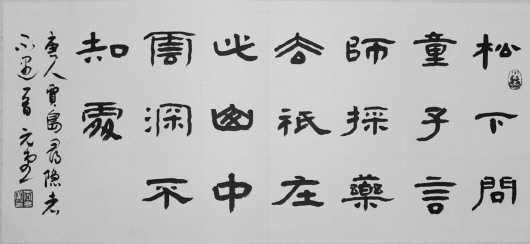 松下問
童子言
師採藥
去祇在
此山中
雲深不
知處
唐人賈島尋隱者
不遇 首 元